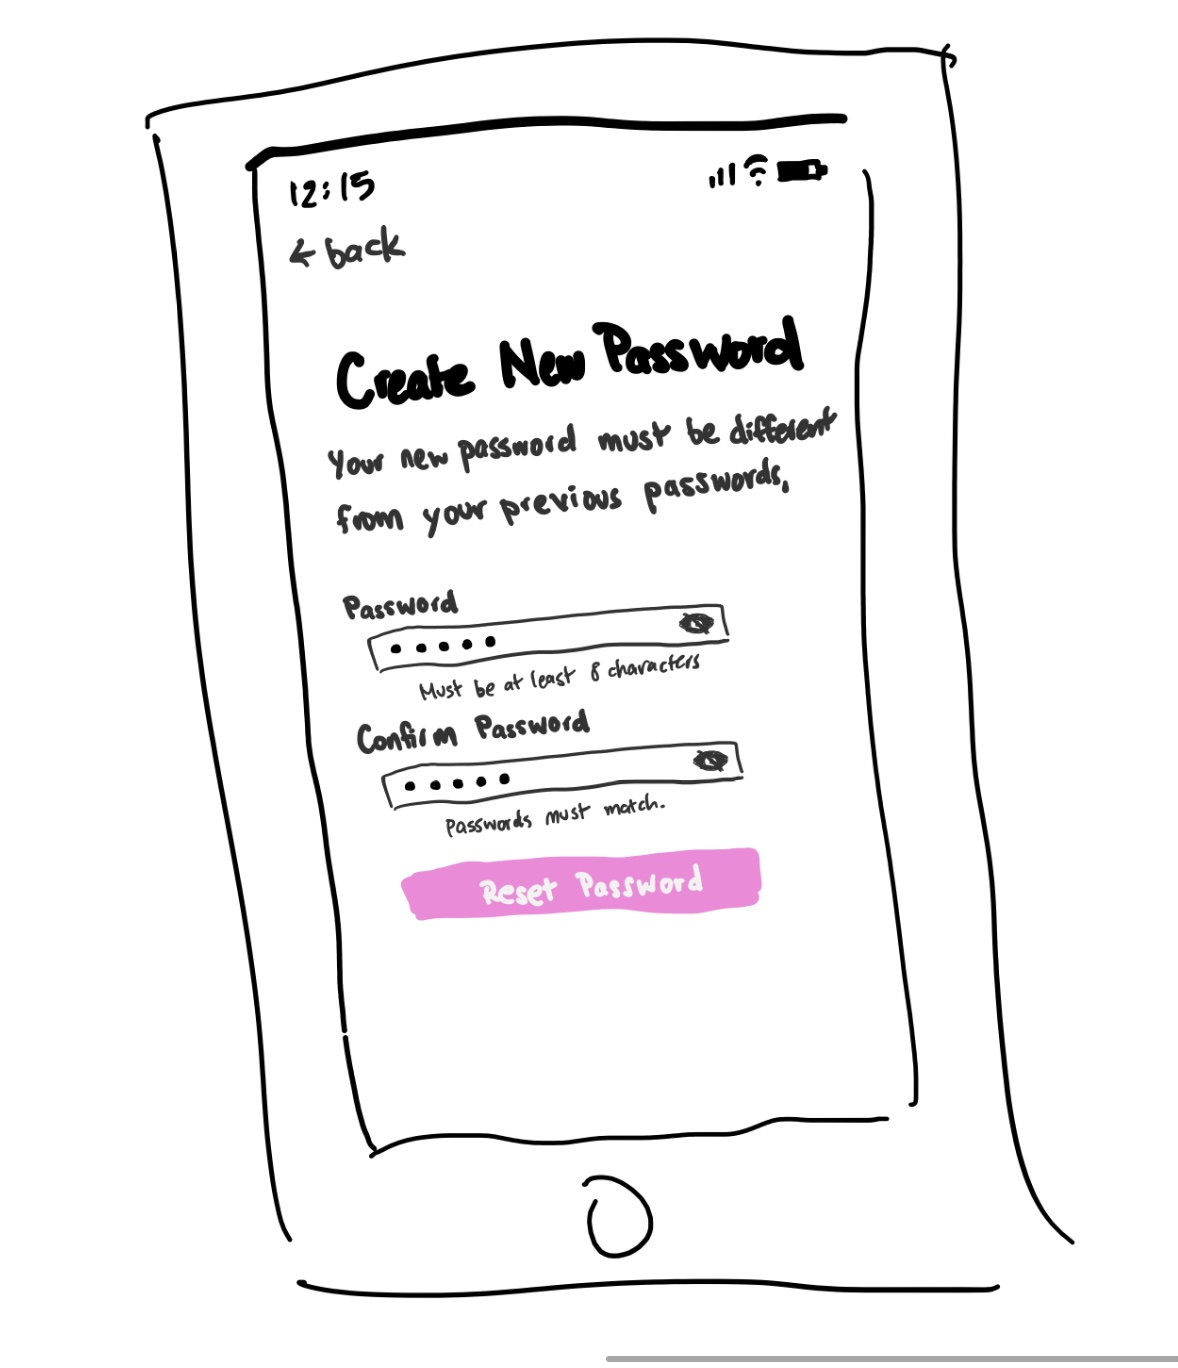 12:15
← back
Create New Password
Your new password must be different
from your previous passwords.
Password
Must be at least 8 characters
Confirm Password
Passwords must match.
Reset Password